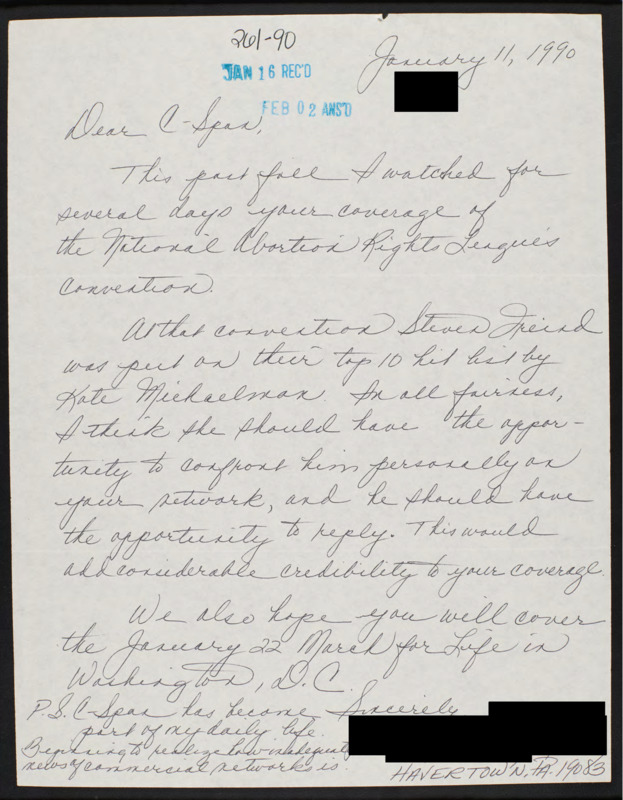 261-90
JAN 16 REC'D
January 11, 1990
FEB 02 ANS'D
Dear C-Span,
This past fall I watched for
several days your coverage of
the National Abortion Rights League's
convention.
At that convention Steven Freind
was put on their top 10 hit list by
Kate Michaelman. In all fairness,
I think she should have the oppor-
tunity to confront him personally on
your network, and he should have
the opportunity to reply. This would
add considerable credibility to your coverage.
We also hope you will cover
the January 22 March for Life in
Washington, D.C.
Sincerely
P.S. C-Span has become
part of my daily life.
Beginning to realize how inadequate
news of commercial networks is.
HAVERTOWN, PA. 19083